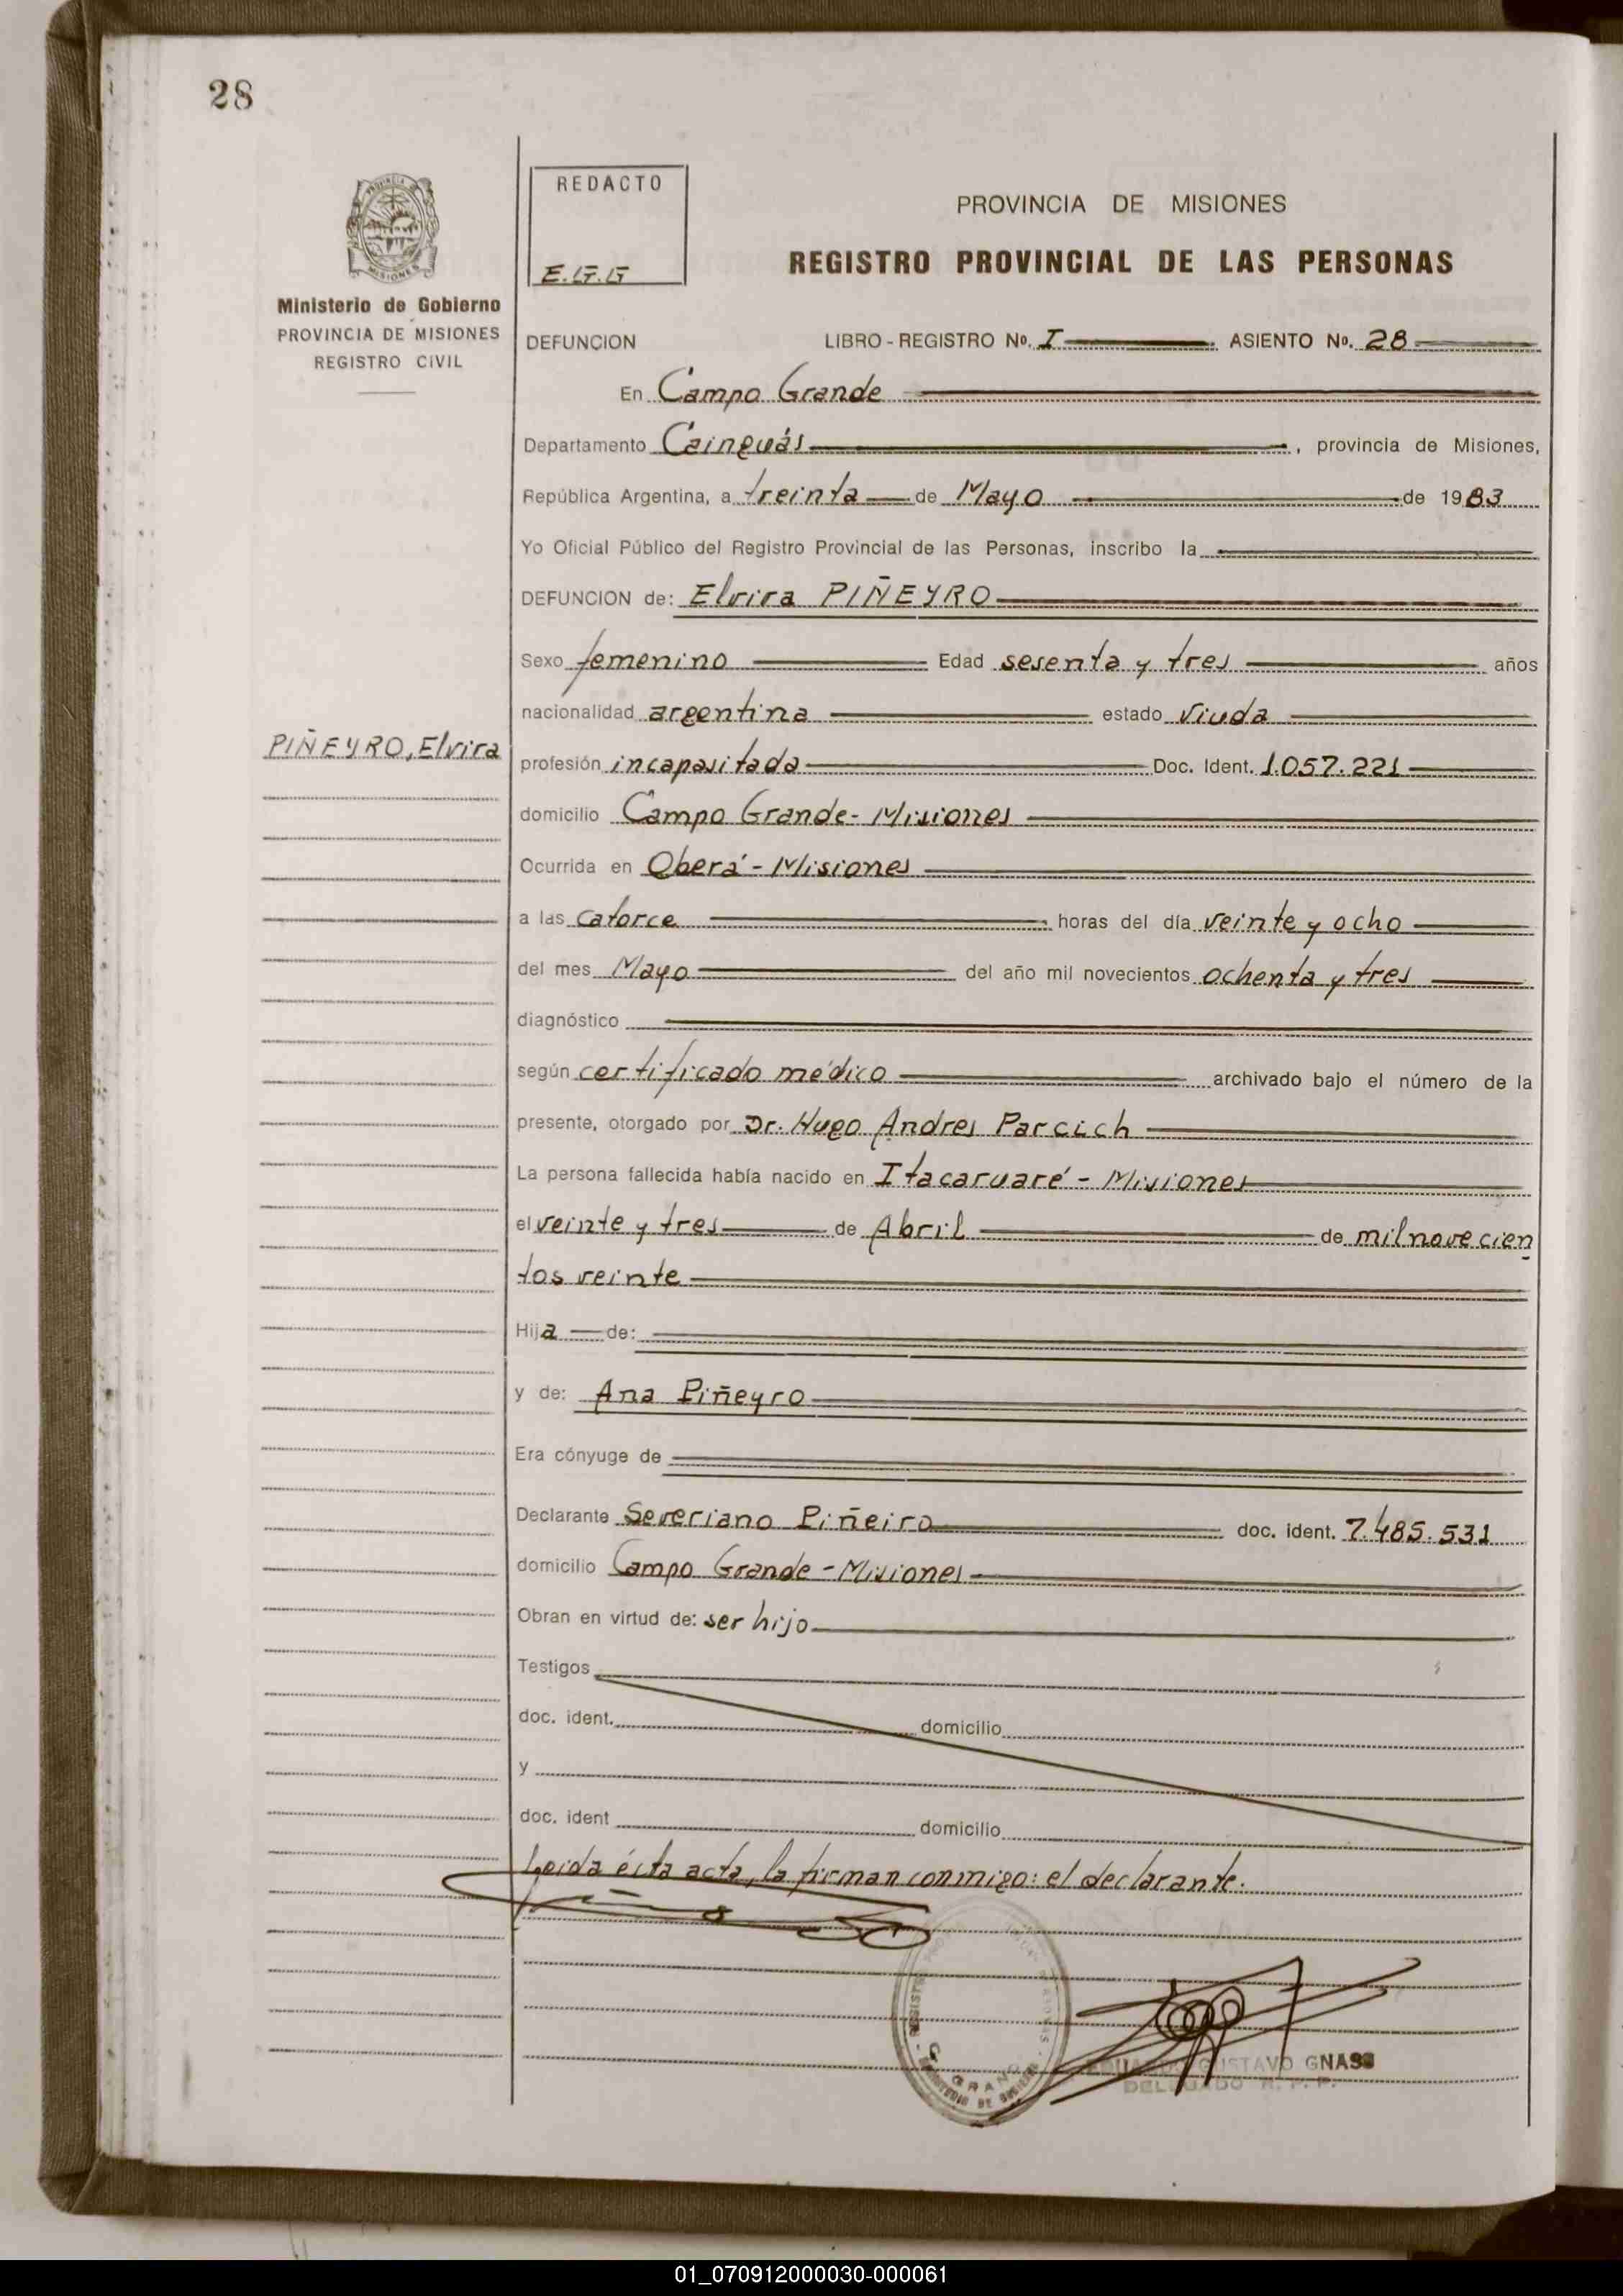 28
REDACTO
E.G.G
PROVINCIA DE MISIONES
REGISTRO PROVINCIAL DE LAS PERSONAS
MISIONES
Ministerio de Gobierno
PROVINCIA DE MISIONES
REGISTRO CIVIL
DEFUNCION LIBRO - REGISTRO Nº. I ASIENTO Nº. 28
En Campo Grande
Departamento Cainguás, provincia de Misiones,
República Argentina, a treinta de Mayo de 1983
Yo Oficial Público del Registro Provincial de las Personas, inscribo la
DEFUNCION de: Elvira PIÑEYRO
Sexo femenino Edad sesenta y tres años
nacionalidad argentina estado viuda
PIÑEYRO, Elvira
profesión incapasitada Doc. Ident. 1.057.221
domicilio Campo Grande - Misiones
Ocurrida en Oberá - Misiones
a las catorce horas del día veinte y ocho
del mes Mayo del año mil novecientos ochenta y tres
diagnóstico
según certificado médico archivado bajo el número de la
presente, otorgado por Dr. Hugo Andres Parcich
La persona fallecida había nacido en Itacaruaré - Misiones
el veinte y tres de Abril de mil novecien
tos veinte
Hija de:
y de: Ana Piñeyro
Era cónyuge de
Declarante Severiano Piñeiro doc. ident. 7.485.531
domicilio Campo Grande - Misiones
Obran en virtud de: ser hijo
Testigos
doc. ident. domicilio
y
doc. ident domicilio
Leida ésta acta, la firman conmigo: el declarante.
GUSTAVO GNASS
DELEGADO R. P. P.
01_070912000030-000061